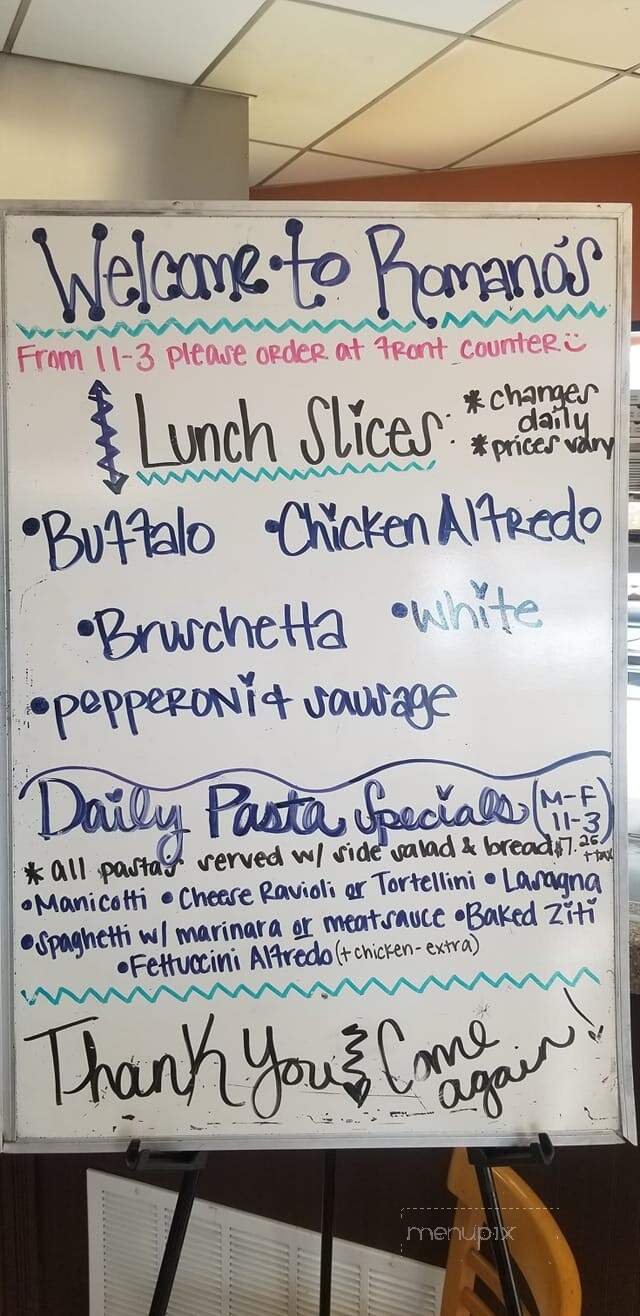 Welcome to Romano's
From 11-3 please order at front counter
Lunch Slices:
* changes
daily
* prices vary
• Buffalo • Chicken Alfredo
• Bruschetta • White
• pepperoni & sausage
Daily Pasta Specials (M-F
11-3)
* all pastas served w/ side salad & bread $7.25
+ tax
• Manicotti • Cheese Ravioli or Tortellini • Lasagna
• Spaghetti w/ marinara or meatsauce • Baked Ziti
• Fettuccini Alfredo (+ chicken-extra)
Thank You & Come
again!
menupix